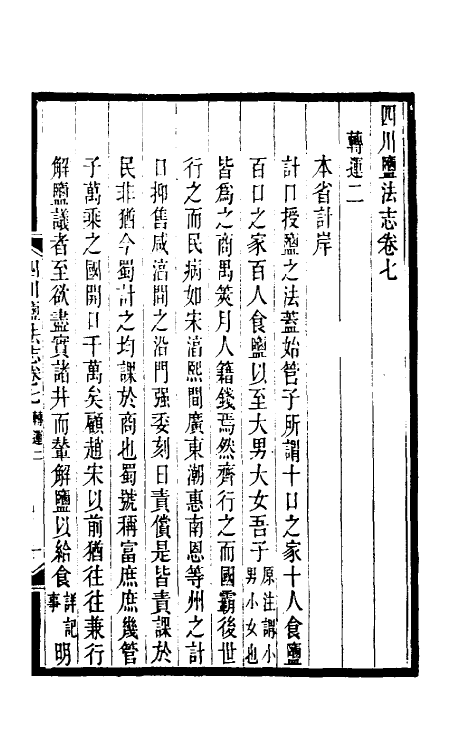 四川鹽法志卷七
轉運二
本省計岸
計口授鹽之法蓋始管子所謂十口之家十人食鹽
百口之家百人食鹽以至大男大女吾子原注謂小男小女也
皆爲之商禺筴月人籍錢焉然齊行之而國霸後世
行之而民病如宋湻熙間廣東潮惠南恩等州之計
口抑售咸湻間之沿門强委刻日責償是皆責課於
民非猶今蜀計之均課於商也蜀號稱富庶庶幾管
子萬乘之國開口千萬矣顧趙宋以前猶往往兼行
解鹽議者至欲盡實諸井而輦解鹽以給食詳記事明
四川鹽法志卷七 轉運二 一